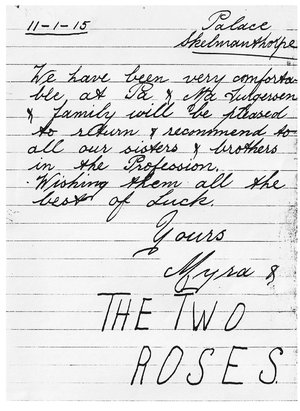 11-1-15
Palace
Skelmanthorpe
We have been very comforta-
ble at Pa & Ma Jurgersen
& family will be pleased
to return & recommend to
all our sisters & brothers
in the Profession.
Wishing them all the
best of Luck.
Yours
Myra &
THE TWO
ROSES.